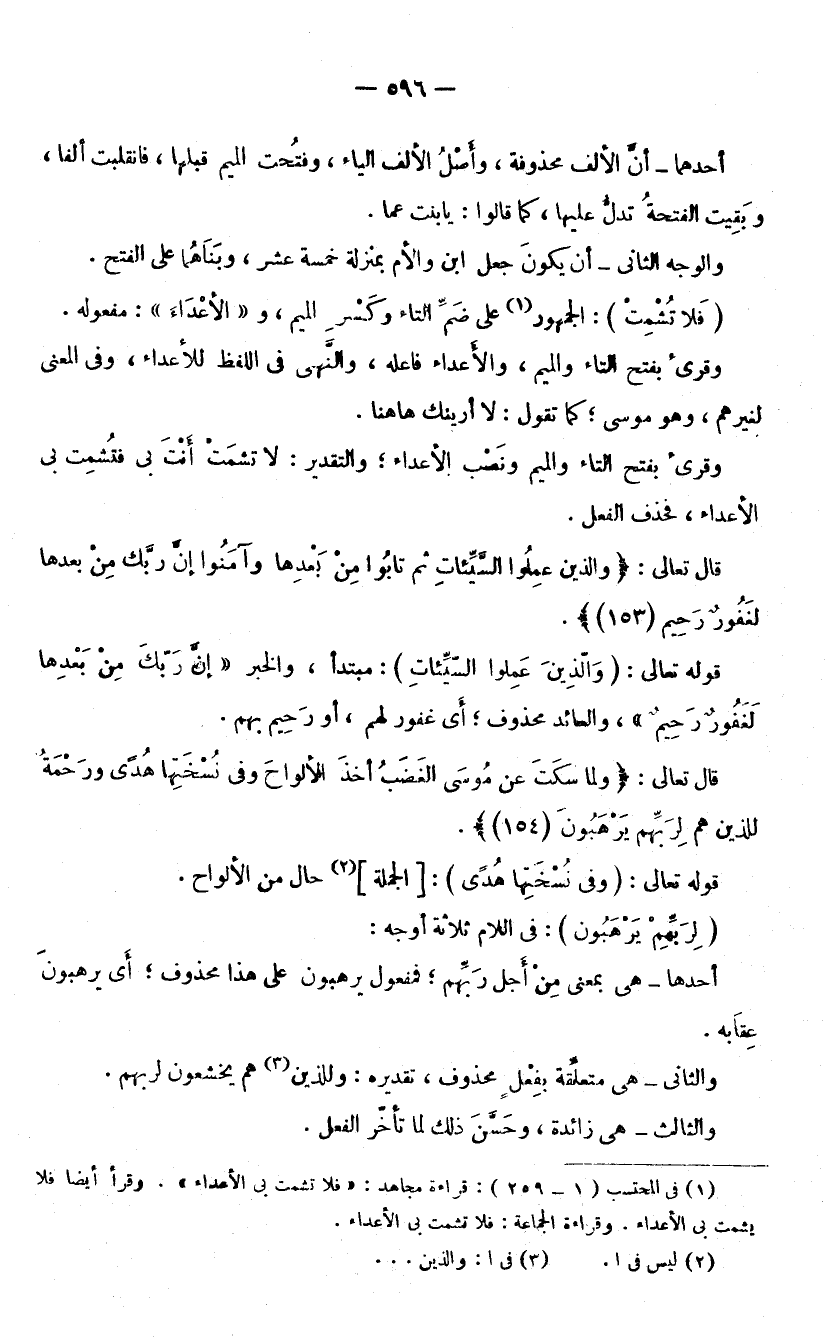 — ٥٩٦ —
أحدهما ـ أنَّ الألف محذوفة ، وأَصْلُ الألف الياء ، وفتُحت الميم قبلها ، فانقلبت ألفا ،
وبَقِيت الفتحةُ تدلُّ عليها ، كما قالوا : يابنت عما .
والوجه الثانى ـ أن يكونَ جعل ابن والأم بمنزلة خمسة عشر ، وبَنَاهُما على الفتح .
( فَلا تُشْمِتْ ) : الجمهور(١) على ضَمِّ التاء وكَسْرِ الميم ، و « الأعْدَاءَ » : مفعوله .
وقرىء بفتح التاء والميم ، والأَعداء فاعله ، والنَّهى فى اللفظ للأعداء ، وفى المعنى
لغيرهم ، وهو موسى ؛ كما تقول : لا أرينك هاهنا .
وقرىء بفتح التاء والميم ونَصْب الأعداء ؛ والتقدير : لا تشمَتْ أَنْتَ بى فتُشمِت بى
الأعداء ، فحذف الفعل .
قال تعالى : ﴿ والذين عمِلُوا السَّيِّئاتِ ثم تابُوا مِنْ بَعْدِها وآمَنُوا إنَّ ربَّك مِنْ بعدها
لغَفُورٌ رَحِيم (١٥٣) ﴾ .
قوله تعالى : ( وَالّذِينَ عَمِلوا السّيِّئاتِ ) : مبتدأ ، والخبر « إنَّ رَبّكَ مِنْ بَعْدِها
لَغَفُورٌ رَحِيمٌ » ، والعائد محذوف ؛ أى غفور لهم ، أو رَحِيم بهم .
قال تعالى : ﴿ ولما سكَتَ عن مُوسَى الغَضَبُ أخذَ الألواحَ وفى نُسْخَتِها هُدًى ورَحْمَةٌ
للذين هم لِرَبِّهِم يَرْهَبُونَ (١٥٤) ﴾ .
قوله تعالى : ( وفى نُسْخَتِها هُدًى ) : [ الجملة ](٢) حال من الألواح .
( لِرَبِّهِمْ يَرْهَبُون ) : فى اللام ثلاثة أوجه :
أحدها ـ هى بمعنى مِنْ أَجل رَبِّهم ؛ فمفعول يرهبون على هذا محذوف ؛ أَى يرهبونَ
عِقابه .
والثانى ـ هى متعلِّقة بفِعْلٍ محذوف ، تقديره : وللذين(٣) هم يخشعون لربهم .
والثالث ـ هى زائدة ، وحَسَّنَ ذلك لما تأخّر الفعل .
(١) فى المحتسب ( ١ ـ ٢٥٩ ) : قراءة مجاهد : « فلا تشمت بى الأعداء » . وقرأ أيضا فلا
يشمت بى الأعداء . وقراءة الجماعة : فلا تشمت بى الأعداء .
(٢) ليس فى ا . (٣) فى ا : والذين . . .